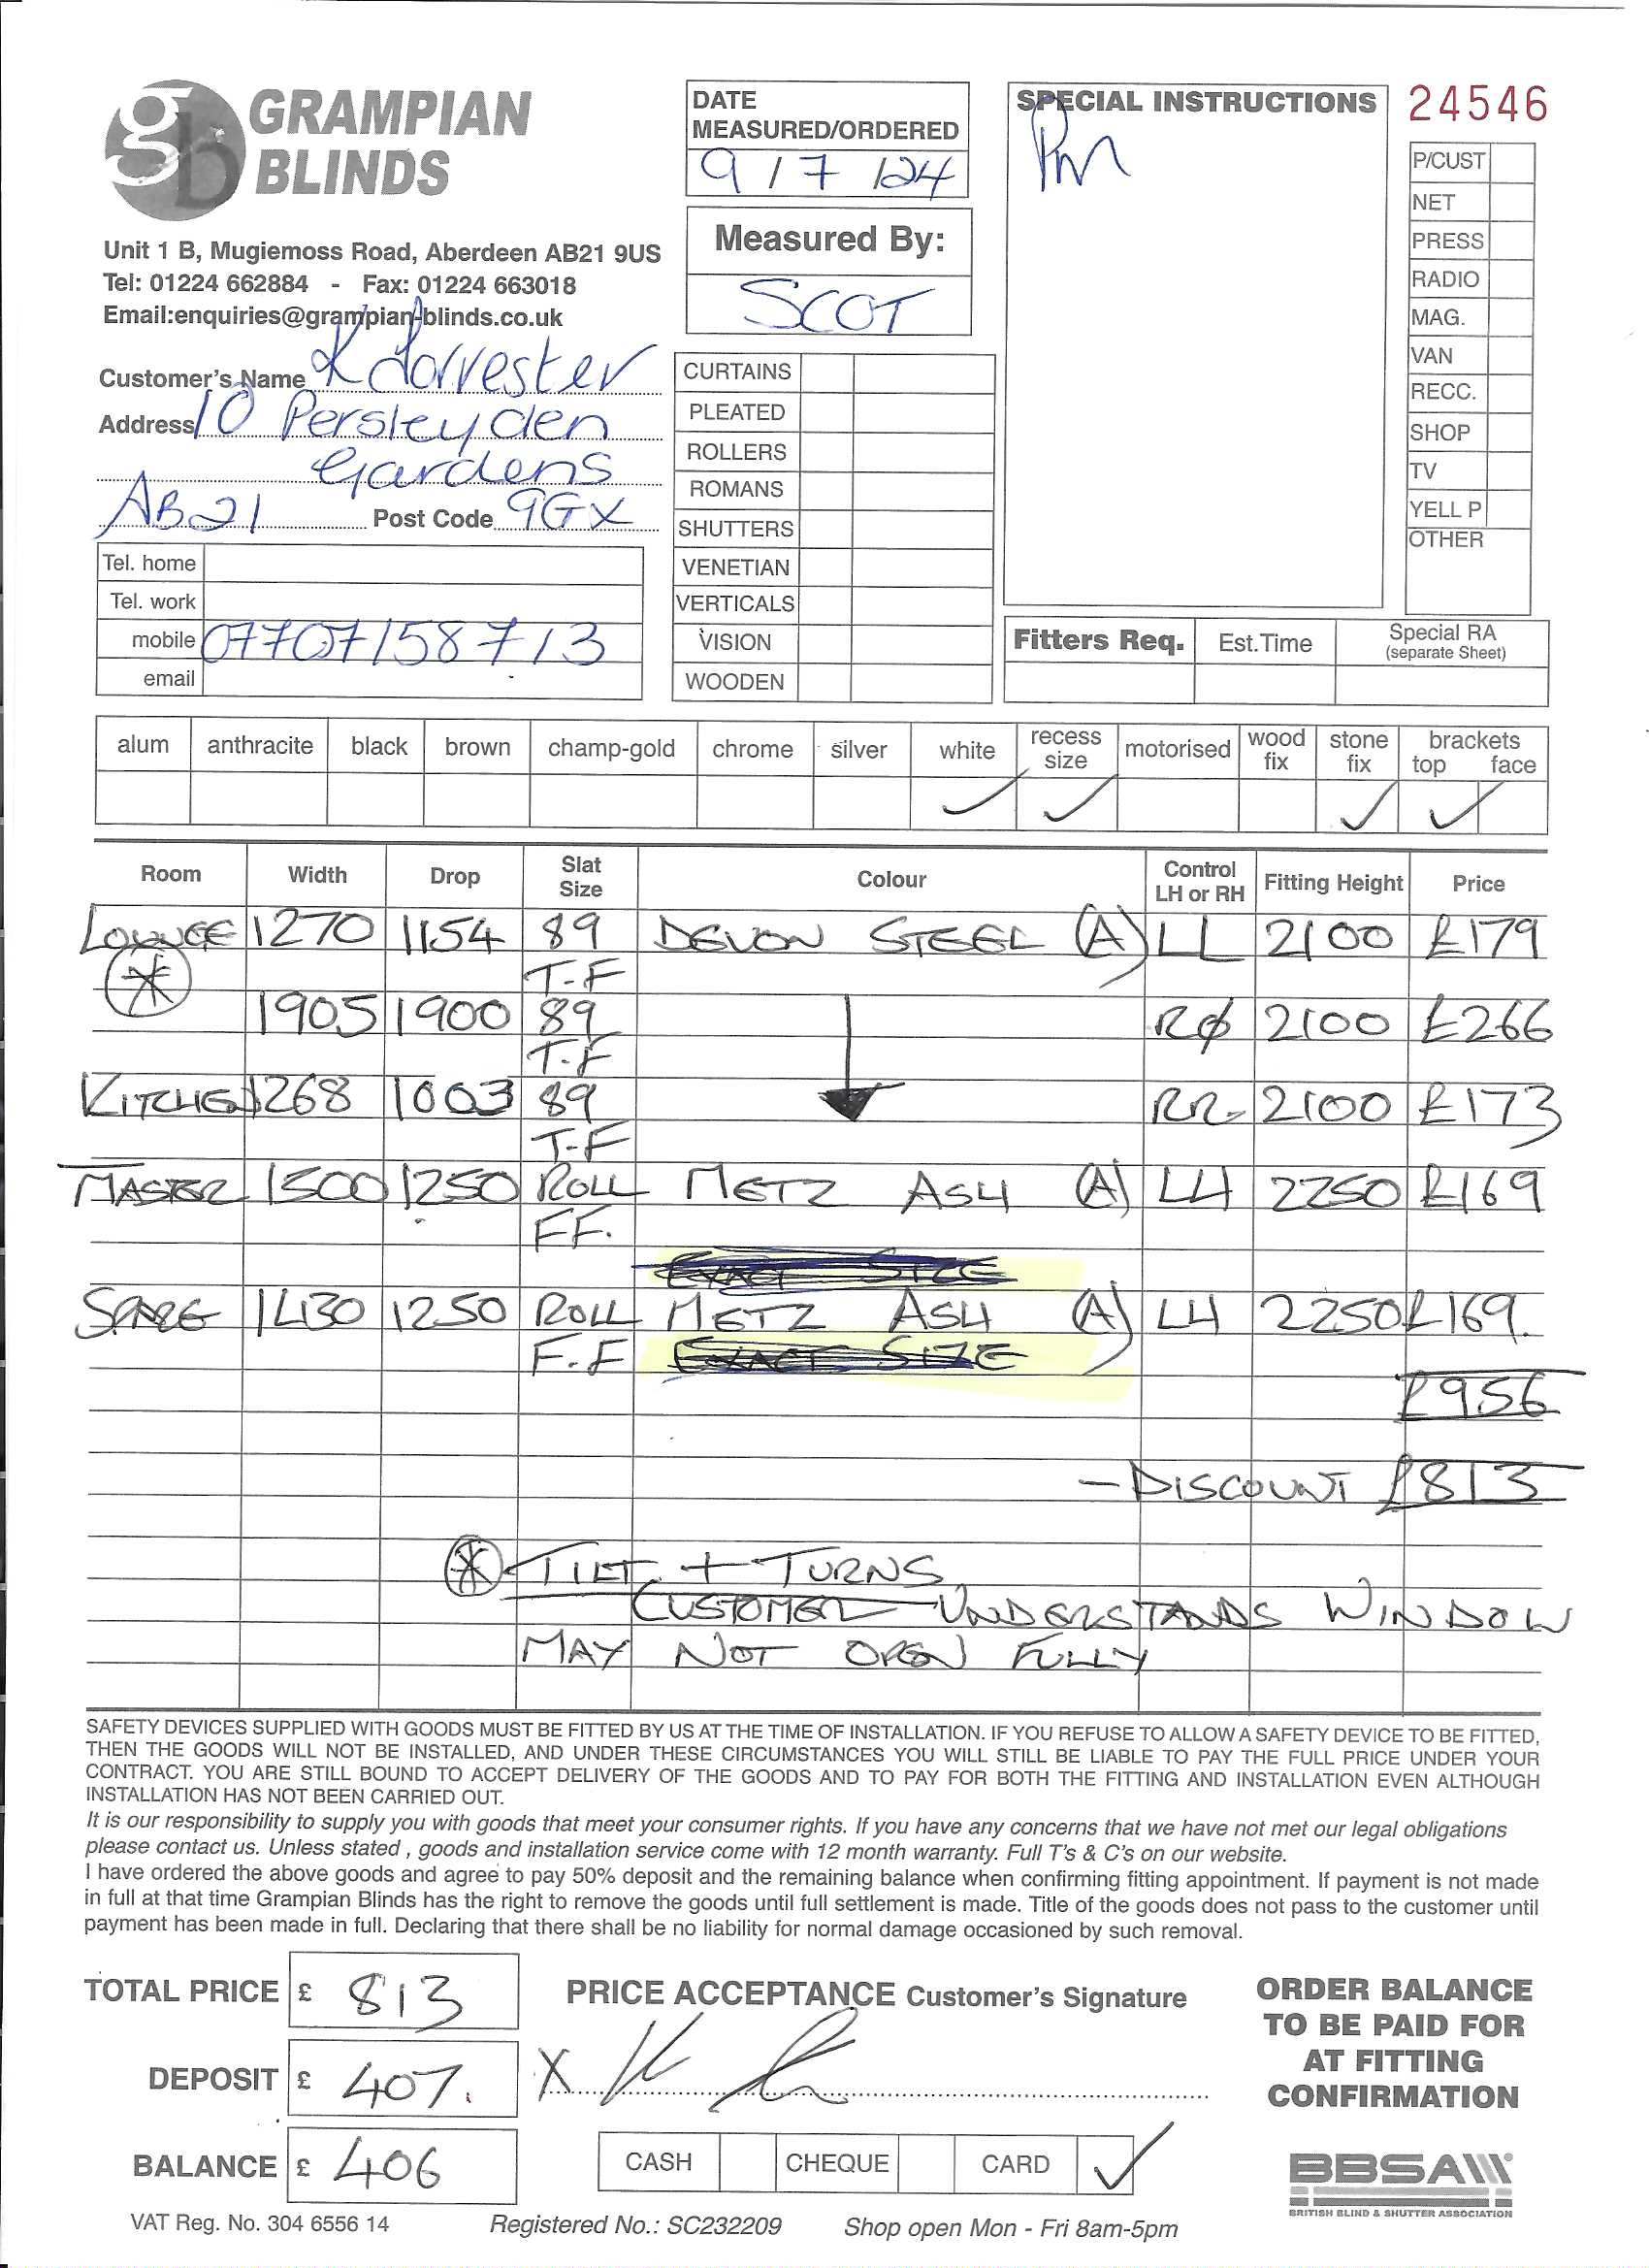 GRAMPIAN
BLINDS
Unit 1 B, Mugiemoss Road, Aberdeen AB21 9US
Tel: 01224 662884 - Fax: 01224 663018
Email:enquiries@grampian-blinds.co.uk
Customer's Name K Forrester
Address 10 Persleyden
Gardens
AB21 Post Code 9GX
Tel. home
Tel. work
mobile 07707158713
email
DATE
MEASURED/ORDERED
9/7/24
Measured By:
SCOT
CURTAINS
PLEATED
ROLLERS
ROMANS
SHUTTERS
VENETIAN
VERTICALS
VISION
WOODEN
SPECIAL INSTRUCTIONS
Pm
24546
P/CUST
NET
PRESS
RADIO
MAG.
VAN
RECC.
SHOP
TV
YELL P
OTHER
Fitters Req. Est.Time Special RA
(separate Sheet)
alum anthracite black brown champ-gold chrome silver white recess size motorised wood fix stone fix brackets top face
Room Width Drop Slat Size Colour Control LH or RH Fitting Height Price
LOUNGE 1270 1154 89 DEVON STEEL (A) LL 2100 £179
* T-F
1905 1900 89 2100 £266
T-F
KITCHEN 1268 1003 89 RR 2100 £173
T-F
MASTER 1500 1250 ROLL METZ ASH (A) LH 2250 £169
FF.
EXACT SIZE
SPARE 1430 1250 ROLL METZ ASH (A) LH 2250 £169.
F.F EXACT SIZE
£956
- DISCOUNT £813
* TILT + TURNS
CUSTOMER UNDERSTANDS WINDOW
MAY NOT OPEN FULLY
SAFETY DEVICES SUPPLIED WITH GOODS MUST BE FITTED BY US AT THE TIME OF INSTALLATION. IF YOU REFUSE TO ALLOW A SAFETY DEVICE TO BE FITTED,
THEN THE GOODS WILL NOT BE INSTALLED, AND UNDER THESE CIRCUMSTANCES YOU WILL STILL BE LIABLE TO PAY THE FULL PRICE UNDER YOUR
CONTRACT. YOU ARE STILL BOUND TO ACCEPT DELIVERY OF THE GOODS AND TO PAY FOR BOTH THE FITTING AND INSTALLATION EVEN ALTHOUGH
INSTALLATION HAS NOT BEEN CARRIED OUT.
It is our responsibility to supply you with goods that meet your consumer rights. If you have any concerns that we have not met our legal obligations
please contact us. Unless stated , goods and installation service come with 12 month warranty. Full T's & C's on our website.
I have ordered the above goods and agree to pay 50% deposit and the remaining balance when confirming fitting appointment. If payment is not made
in full at that time Grampian Blinds has the right to remove the goods until full settlement is made. Title of the goods does not pass to the customer until
payment has been made in full. Declaring that there shall be no liability for normal damage occasioned by such removal.
TOTAL PRICE £ 813
DEPOSIT £ 407.
BALANCE £ 406
PRICE ACCEPTANCE Customer's Signature
X
CASH CHEQUE CARD
ORDER BALANCE
TO BE PAID FOR
AT FITTING
CONFIRMATION
BBSA
BRITISH BLIND & SHUTTER ASSOCIATION
VAT Reg. No. 304 6556 14 Registered No.: SC232209 Shop open Mon - Fri 8am-5pm